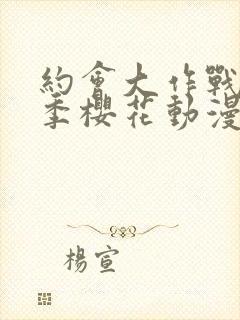 約會大作戰
季櫻花動漫
楊宣